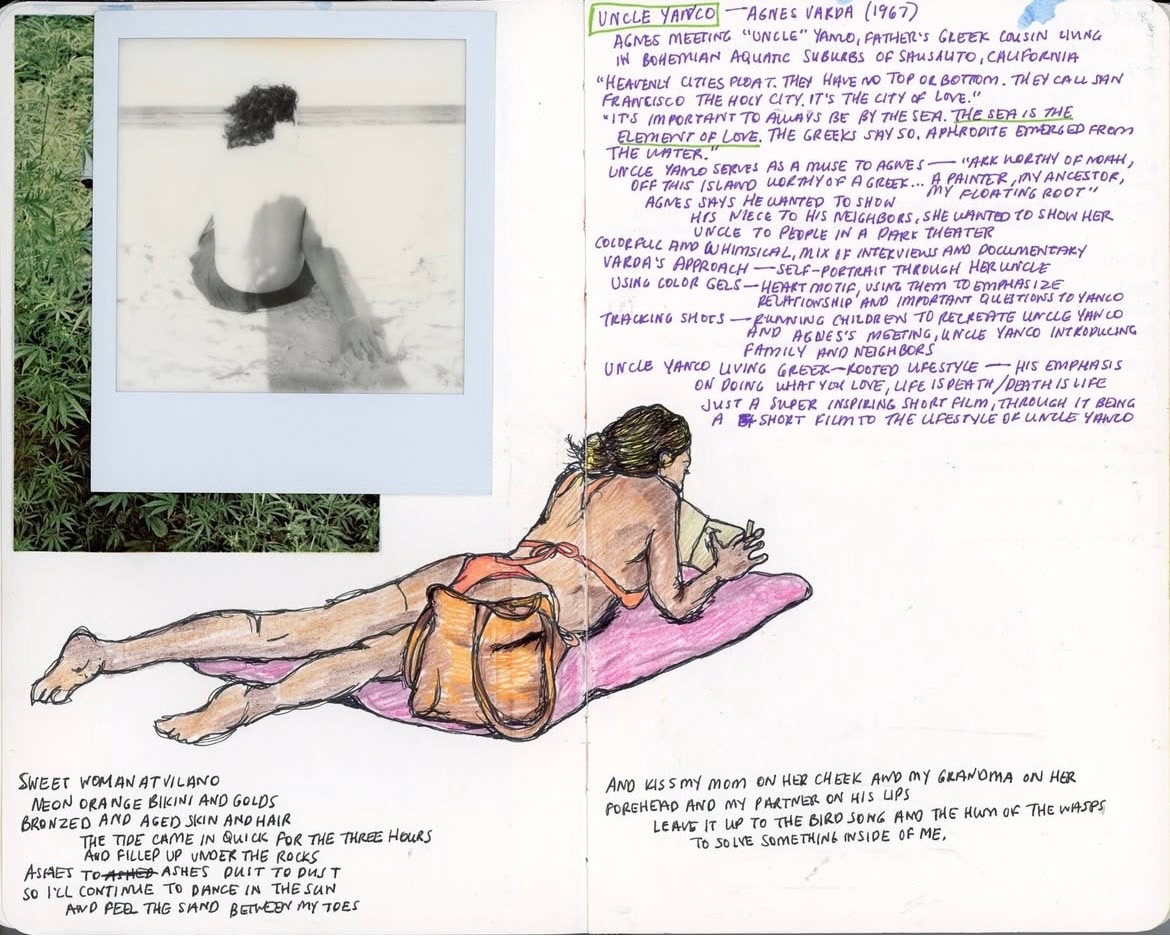 UNCLE YANCO — AGNES VARDA (1967)
AGNES MEETING "UNCLE" YANCO, FATHER'S GREEK COUSIN LIVING
IN BOHEMIAN AQUATIC SUBURBS OF SAUSALITO, CALIFORNIA
"HEAVENLY CITIES FLOAT. THEY HAVE NO TOP OR BOTTOM. THEY CALL SAN
FRANCISCO THE HOLY CITY. IT'S THE CITY OF LOVE."
"IT'S IMPORTANT TO ALWAYS BE BY THE SEA. THE SEA IS THE
ELEMENT OF LOVE. THE GREEKS SAY SO. APHRODITE EMERGED FROM
THE WATER."
UNCLE YANCO SERVES AS A MUSE TO AGNES — "ARK WORTHY OF NOAH,
OFF THIS ISLAND WORTHY OF A GREEK... A PAINTER, MY ANCESTOR,
MY FLOATING ROOT"
AGNES SAYS HE WANTED TO SHOW
HIS NIECE TO HIS NEIGHBORS, SHE WANTED TO SHOW HER
UNCLE TO PEOPLE IN A DARK THEATER
COLORFULL AND WHIMSICAL, MIX OF INTERVIEWS AND DOCUMENTARY
VARDA'S APPROACH — SELF-PORTRAIT THROUGH HER UNCLE
USING COLOR GELS — HEART MOTIF, USING THEM TO EMPHASIZE
RELATIONSHIP AND IMPORTANT QUESTIONS TO YANCO
TRACKING SHOTS — RUNNING CHILDREN TO RECREATE UNCLE YANCO
AND AGNES'S MEETING, UNCLE YANCO INTRODUCING
FAMILY AND NEIGHBORS
UNCLE YANCO LIVING GREEK-ROOTED LIFESTYLE — HIS EMPHASIS
ON DOING WHAT YOU LOVE, LIFE IS DEATH/DEATH IS LIFE
JUST A SUPER INSPIRING SHORT FILM, THROUGH IT BEING
A SHORT FILM TO THE LIFESTYLE OF UNCLE YANCO
SWEET WOMAN AT VILANO
NEON ORANGE BIKINI AND GOLDS
BRONZED AND AGED SKIN AND HAIR
THE TIDE CAME IN QUICK FOR THE THREE HOURS
AND FILLED UP UNDER THE ROCKS
ASHES TO ASHES DUST TO DUST
SO I'LL CONTINUE TO DANCE IN THE SUN
AND PEEL THE SAND BETWEEN MY TOES
AND KISS MY MOM ON HER CHEEK AND MY GRANDMA ON HER
FOREHEAD AND MY PARTNER ON HIS LIPS
LEAVE IT UP TO THE BIRD SONG AND THE HUM OF THE WASPS
TO SOLVE SOMETHING INSIDE OF ME.